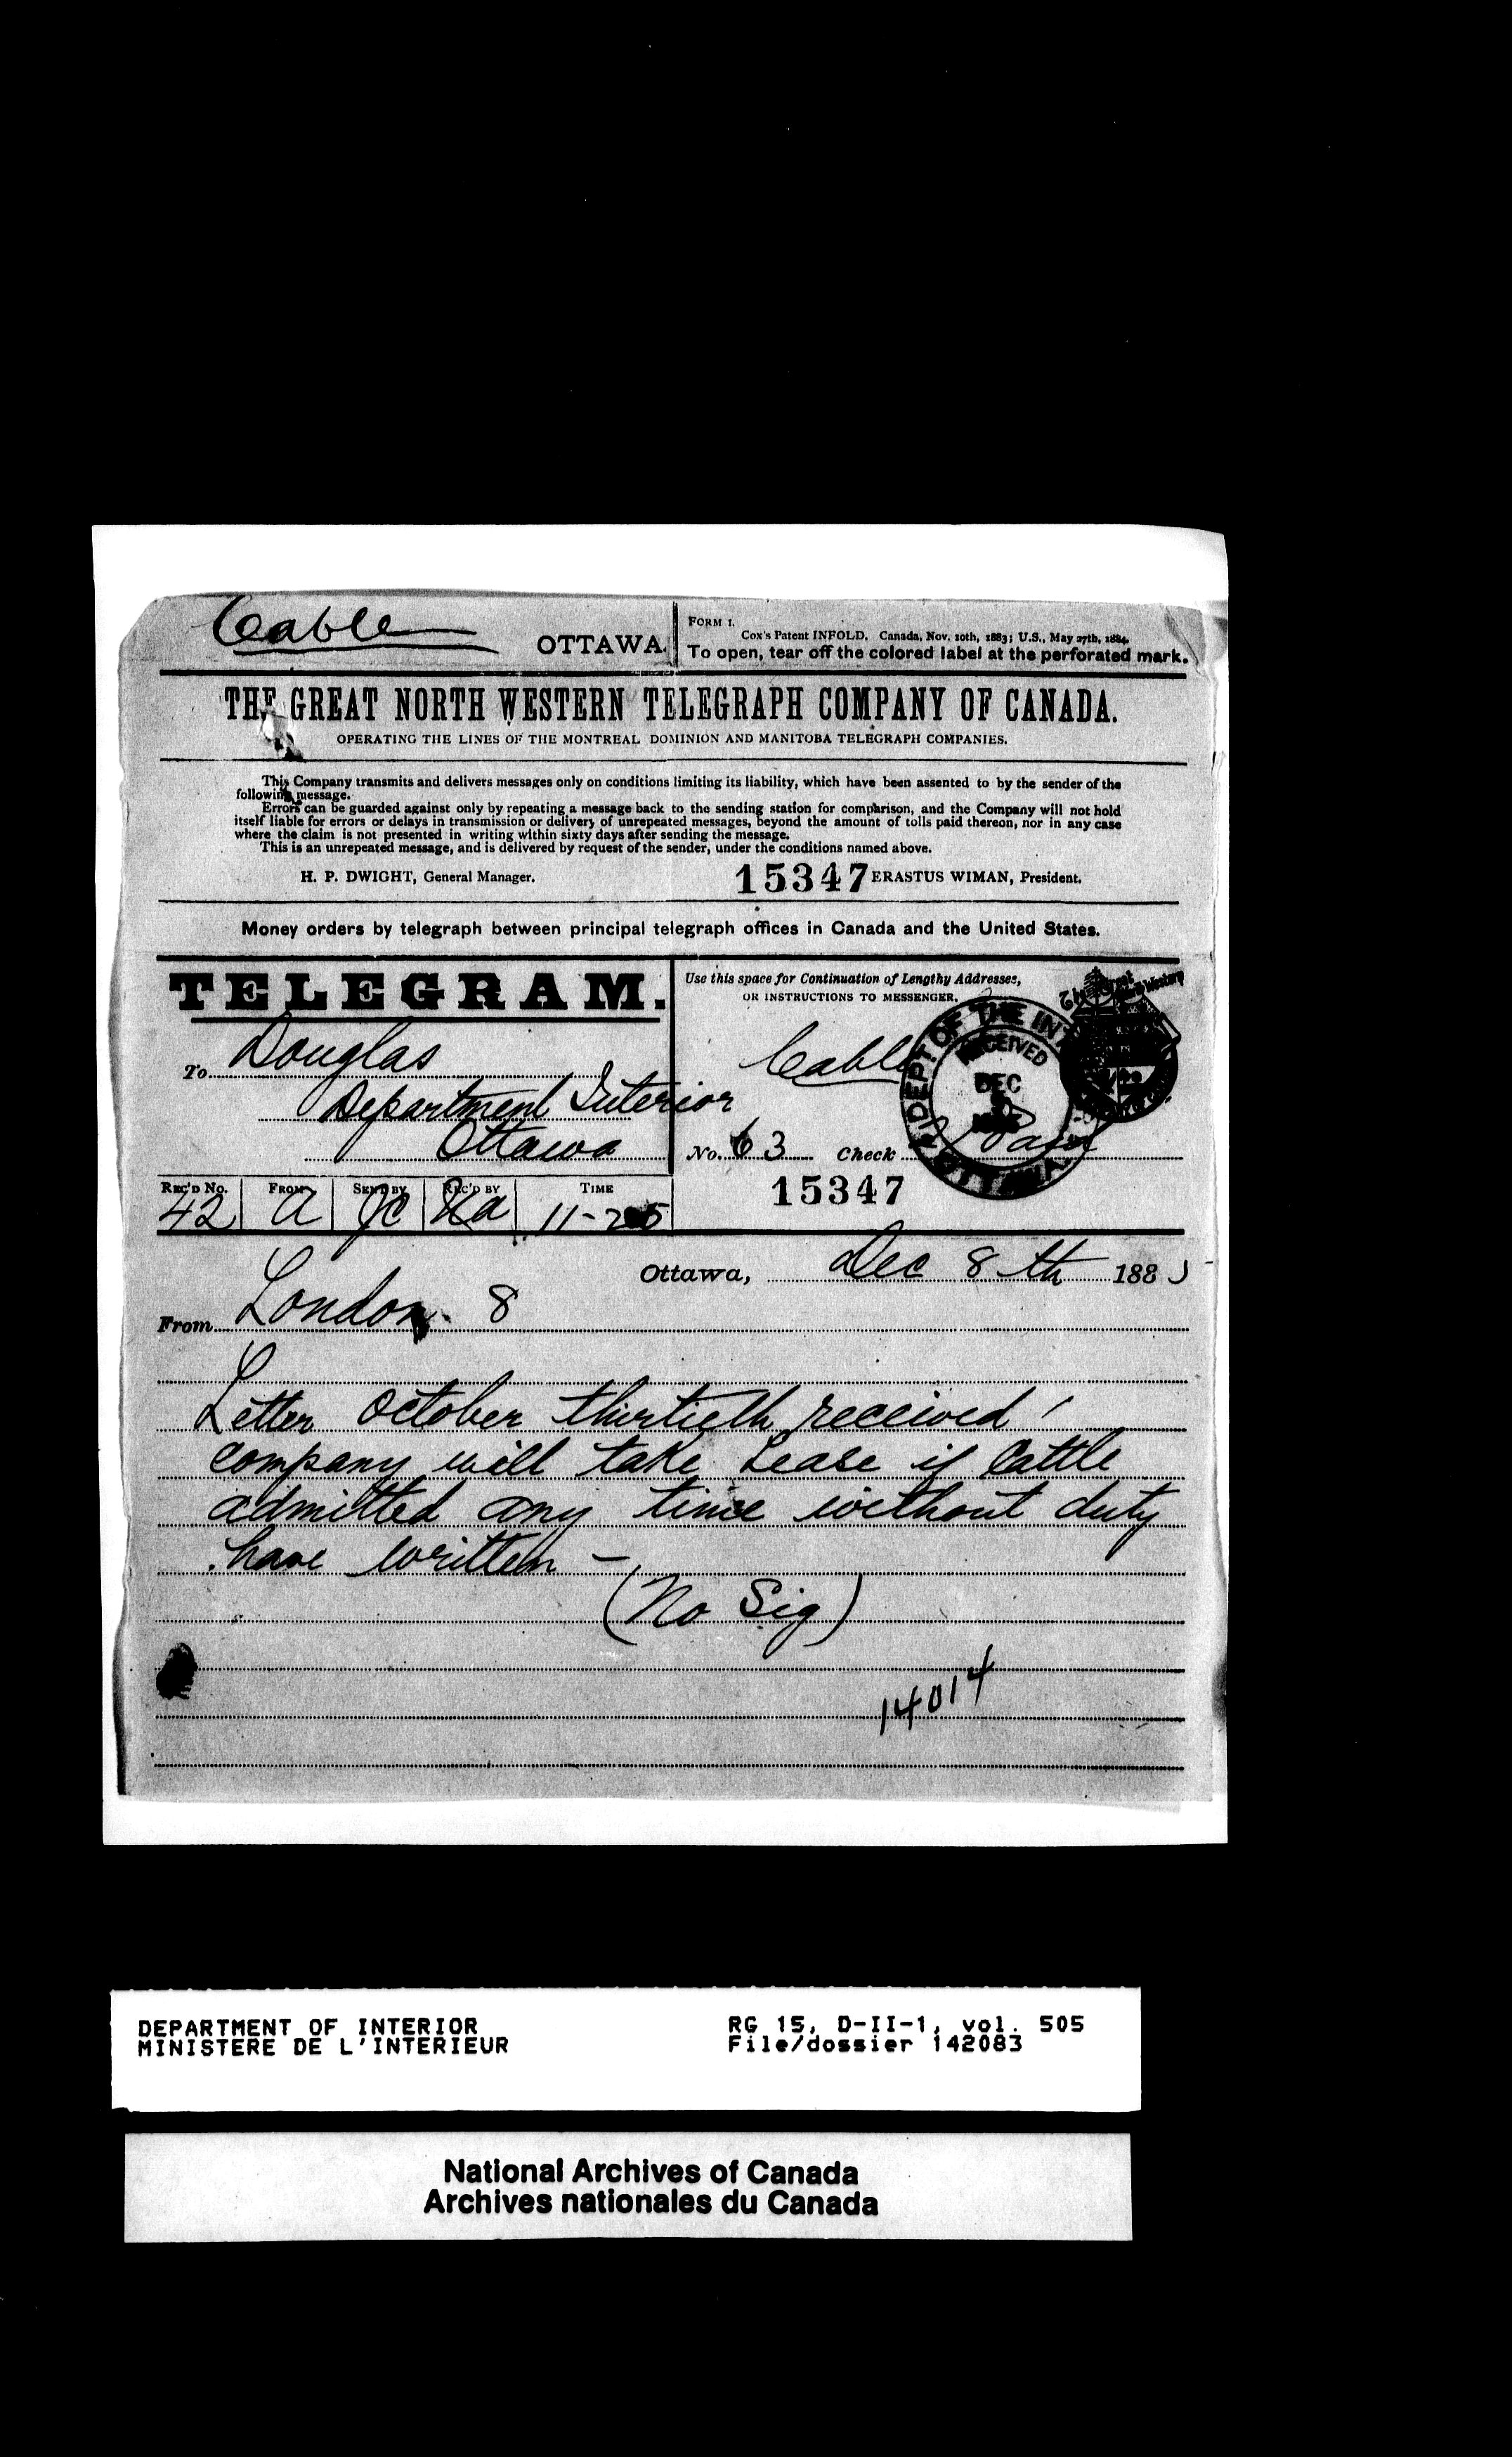 Cable
OTTAWA.
FORM 1.
Cox's Patent INFOLD. Canada, Nov. 10th, 1883; U.S., May 27th, 1884.
To open, tear off the colored label at the perforated mark.
THE GREAT NORTH WESTERN TELEGRAPH COMPANY OF CANADA.
OPERATING THE LINES OF THE MONTREAL DOMINION AND MANITOBA TELEGRAPH COMPANIES.
This Company transmits and delivers messages only on conditions limiting its liability, which have been assented to by the sender of the
following message.
Errors can be guarded against only by repeating a message back to the sending station for comparison, and the Company will not hold
itself liable for errors or delays in transmission or delivery of unrepeated messages, beyond the amount of tolls paid thereon, nor in any case
where the claim is not presented in writing within sixty days after sending the message.
This is an unrepeated message, and is delivered by request of the sender, under the conditions named above.
H. P. DWIGHT, General Manager.
15347 ERASTUS WIMAN, President.
Money orders by telegraph between principal telegraph offices in Canada and the United States.
TELEGRAM.
Use this space for Continuation of Lengthy Addresses,
OR INSTRUCTIONS TO MESSENGER.
To Douglas
Department Interior
Ottawa
Cable
DEPT OF THE INT
RECEIVED
DEC
OTTAWA
No. 63 Check Paid
15347
REC'D No. FROM SENT BY REC'D BY TIME
42 a Jc 11-25
Ottawa, Dec 8th 1885
From London 8
Letter October thirtieth received
company will take Lease if Cattle
admitted any time without duty
have written -
(No Sig)
14014
DEPARTMENT OF INTERIOR
MINISTERE DE L'INTERIEUR
RG 15, D-II-1, vol. 505
File/dossier 142083
National Archives of Canada
Archives nationales du Canada